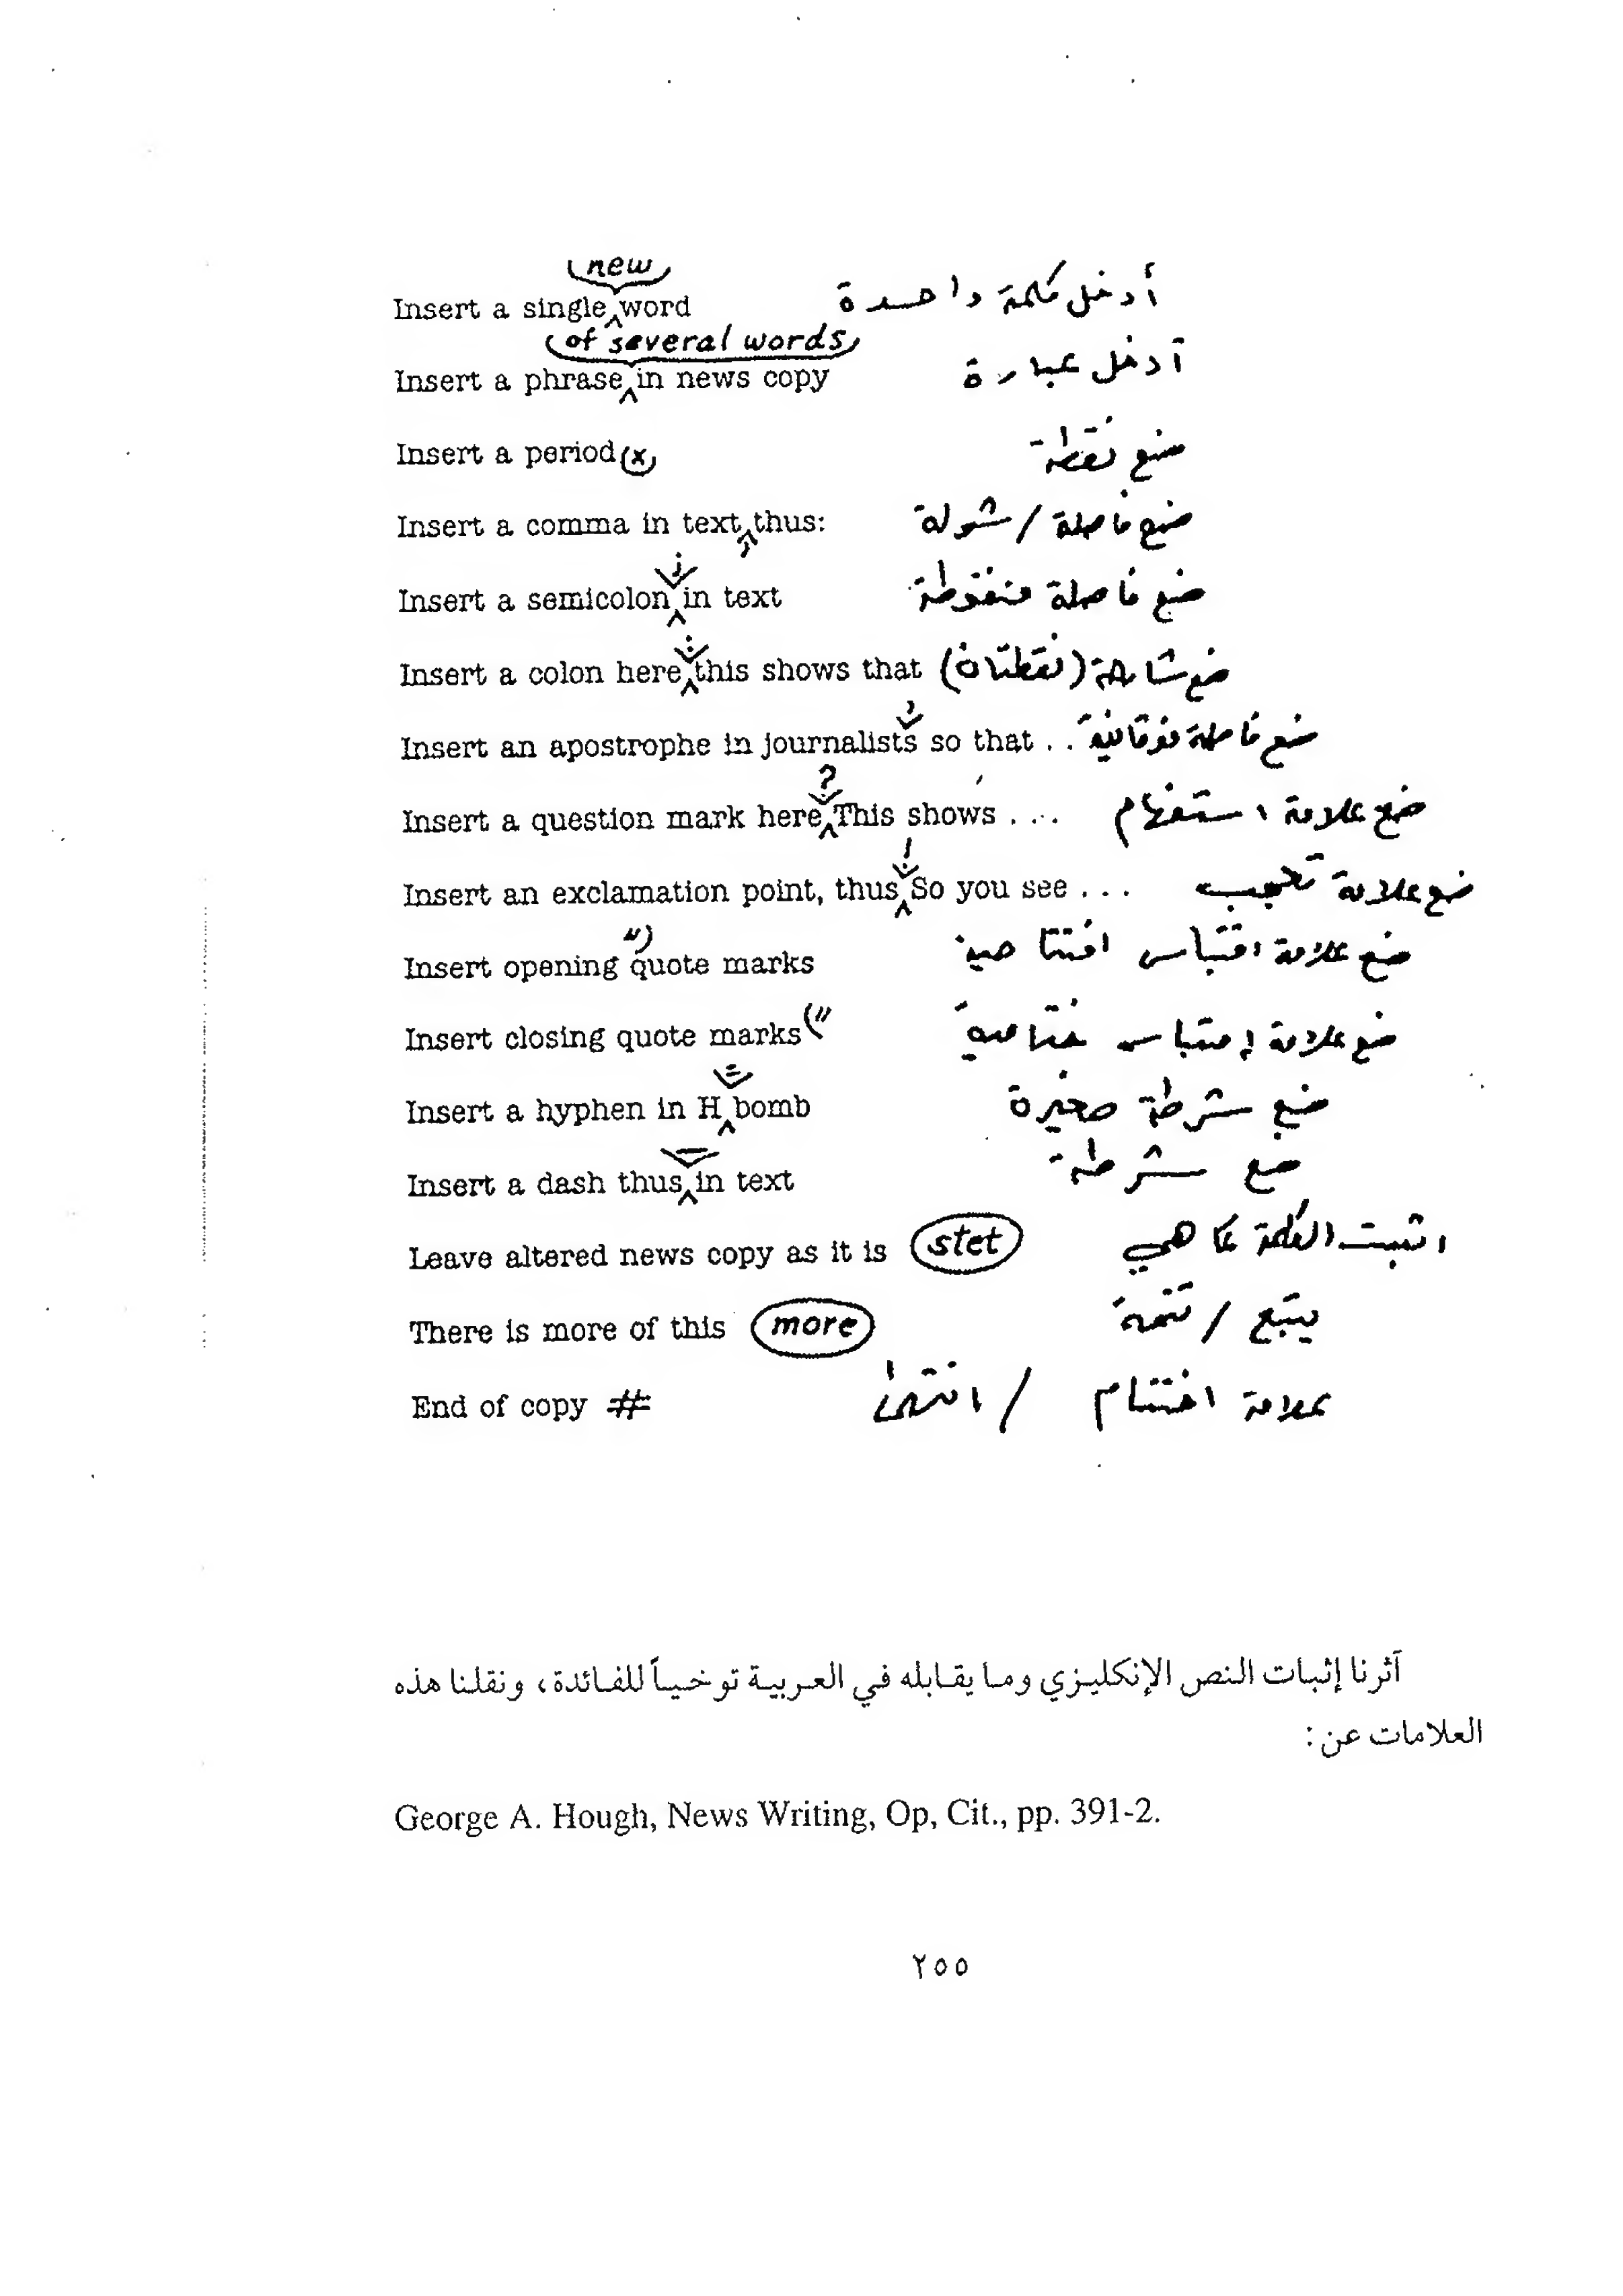 new
Insert a single‸word أدخل كلمة واحدة
of several words
Insert a phrase‸in news copy أدخل عبارة
Insert a period(x) ضع نقطة
Insert a comma in text‸thus: ضع فاصلة / شولة
;
Insert a semicolon‸in text ضع فاصلة منقوطة
:
Insert a colon here‸this shows that ضع شارحة (نقطتان)
,
Insert an apostrophe in journalists so that . . ضع فاصلة فوقانية
?
Insert a question mark here‸This shows . . . ضع علامة استفهام
!
Insert an exclamation point, thus‸So you see . . . ضع علامة تعجب
Insert opening "quote marks ضع علامة اقتباس افتتاحية
Insert closing quote marks" ضع علامة إقتباس ختامية
=
Insert a hyphen in H‸bomb ضع شرطة صغيرة
Insert a dash thus‸in text ضع شرطة
Leave altered news copy as it is stet اثبت الكلمة كما هي
There is more of this more يتبع / تتمة
End of copy # علامة اختتام / انتهى
آثرنا إثبات النص الإنكليزي وما يقابله في العربية توخياً للفائدة، ونقلنا هذه
العلامات عن:
George A. Hough, News Writing, Op, Cit., pp. 391-2.
٢٥٥